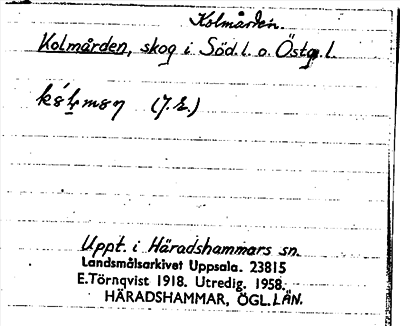 Kolmården.
Kolmården, skog i Söd.l. o. Östg.l.
Uppt. i Häradshammars sn.
Landsmålsarkivet Uppsala. 23815
E. Törnqvist 1918. Utredig. 1958.
HÄRADSHAMMAR, ÖGL. LÄN.